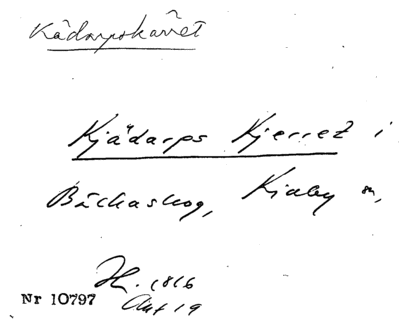 Kådarpskärret
Kjädarps Kjerret i
Bäckaskog, Kiaby sn,
H. 1816
Akt 19
Nr 10797